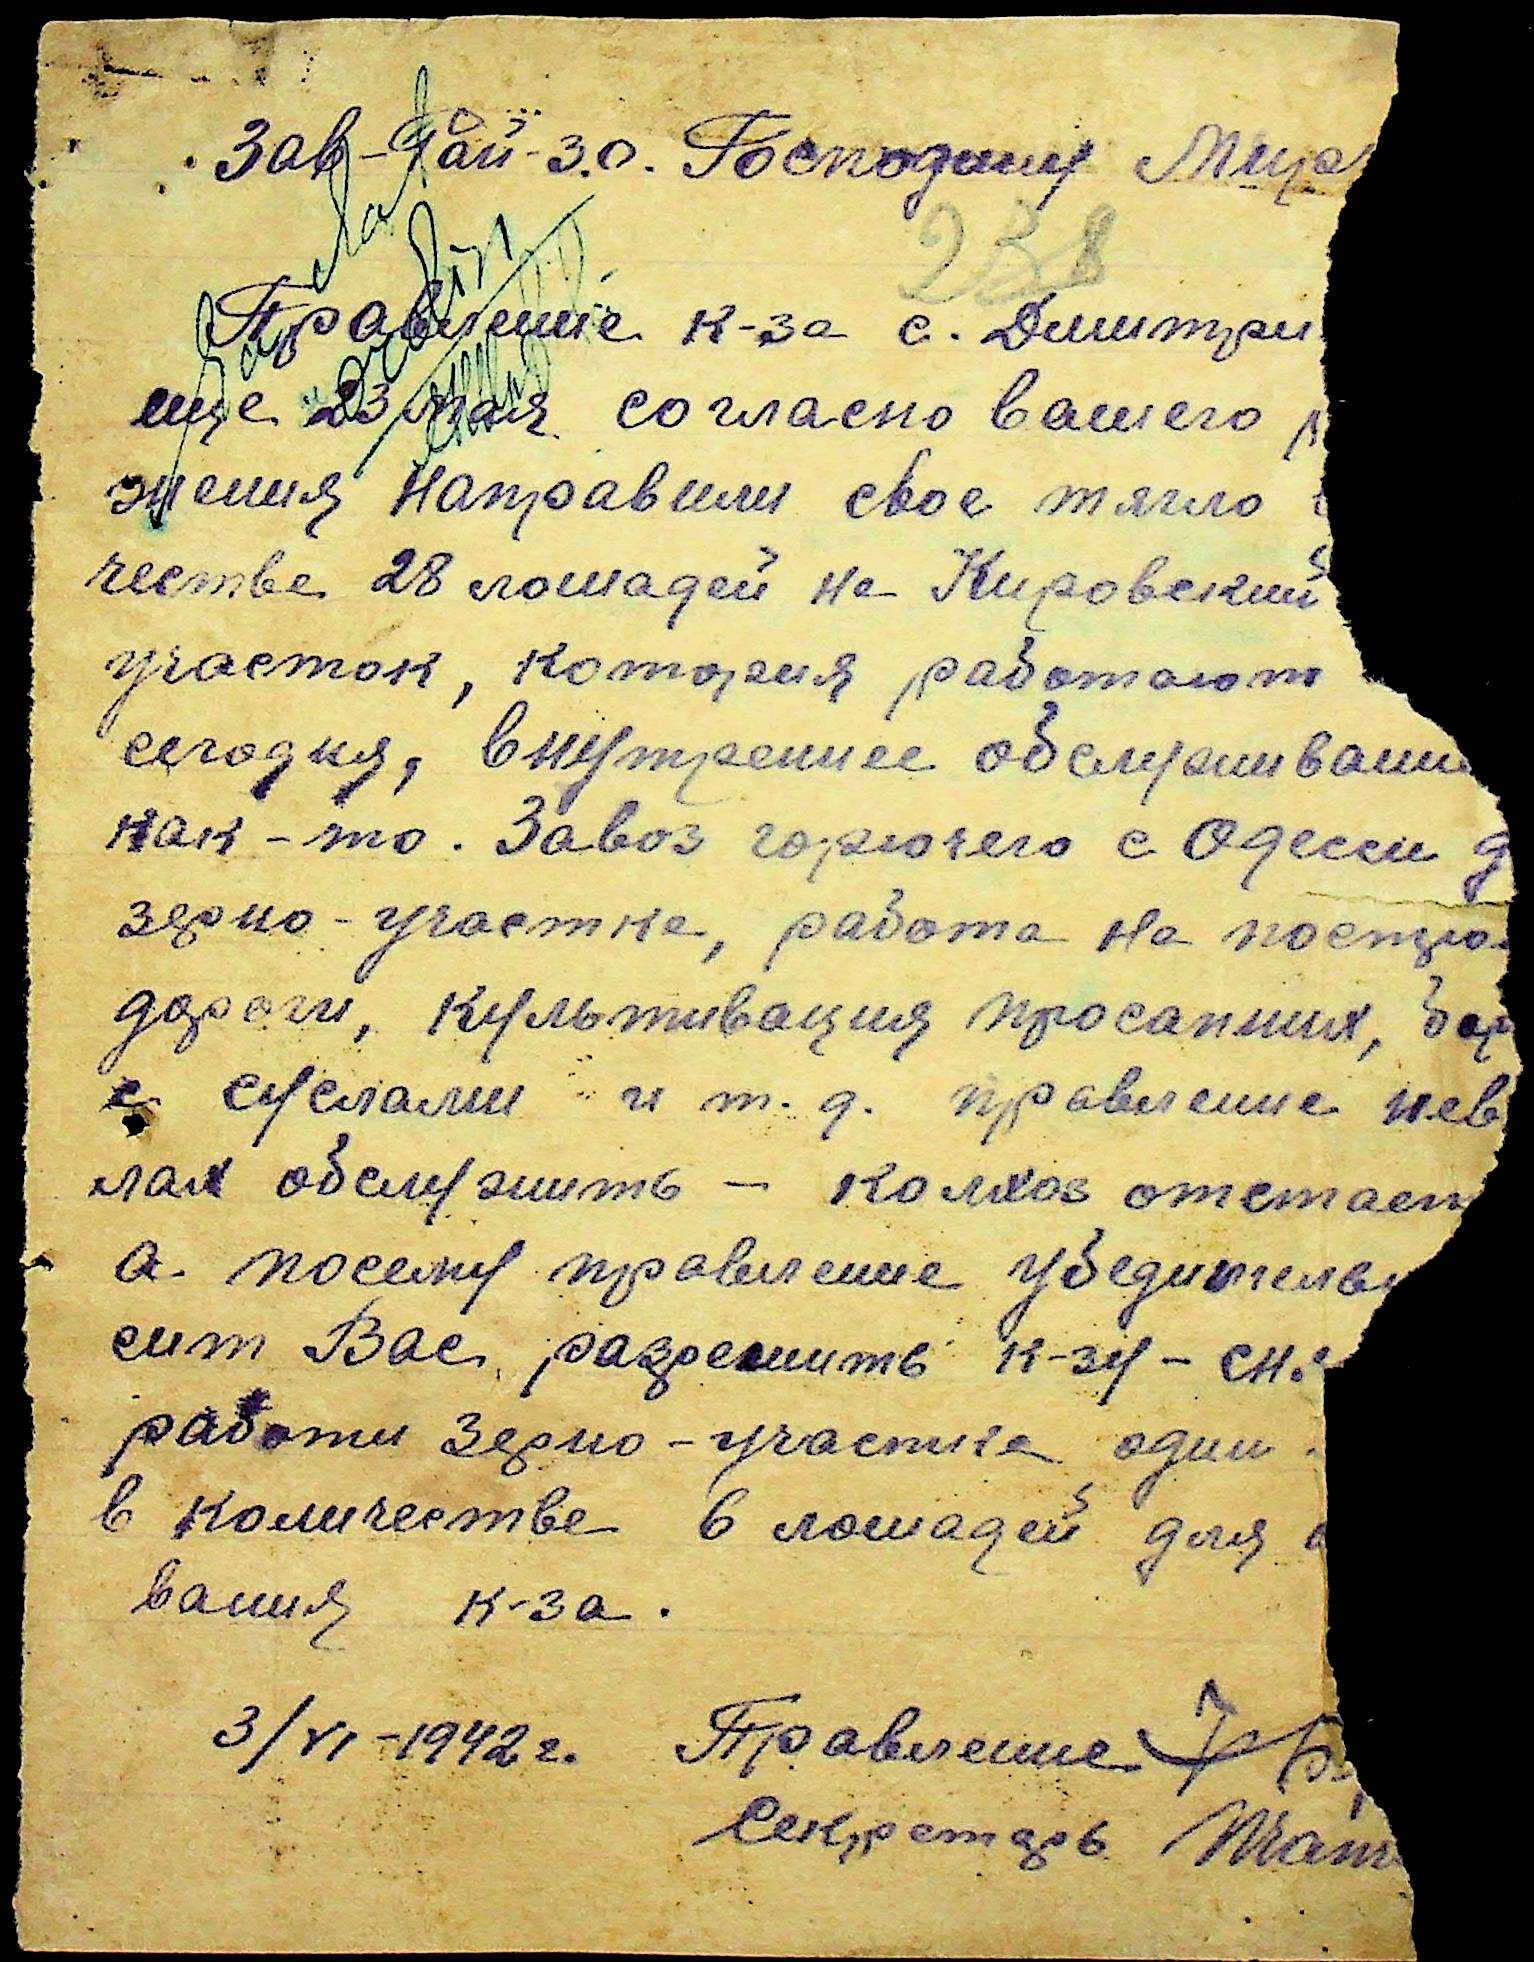 Зав-Рай-З.О. Господину Мира
238
Правление к-за с. Дмитри
еще 23 мая согласно вашего р
жения направили свое тягло в
честве 28 лошадей на Кировский
участок, котория работают
сегодня, внутреннее обслуживание
как-то. Завоз горючего с Одесси д
зерно-участка, работа на постро
дороги, культивация просапних, бор
с суслами и т.д. правление нев
лах обслужить – колхоз отстает
а посему правление убедительн
сит Вас разрешить к-зу – сн
работи зерно-участка один
в количестве 6 лошадей для о
вания к-за.
3/VI-1942 г. Правление
Секретарь